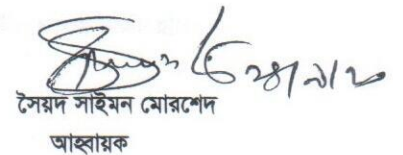 সৈয়দ সাইমন মোরশেদ
আহ্বায়ক